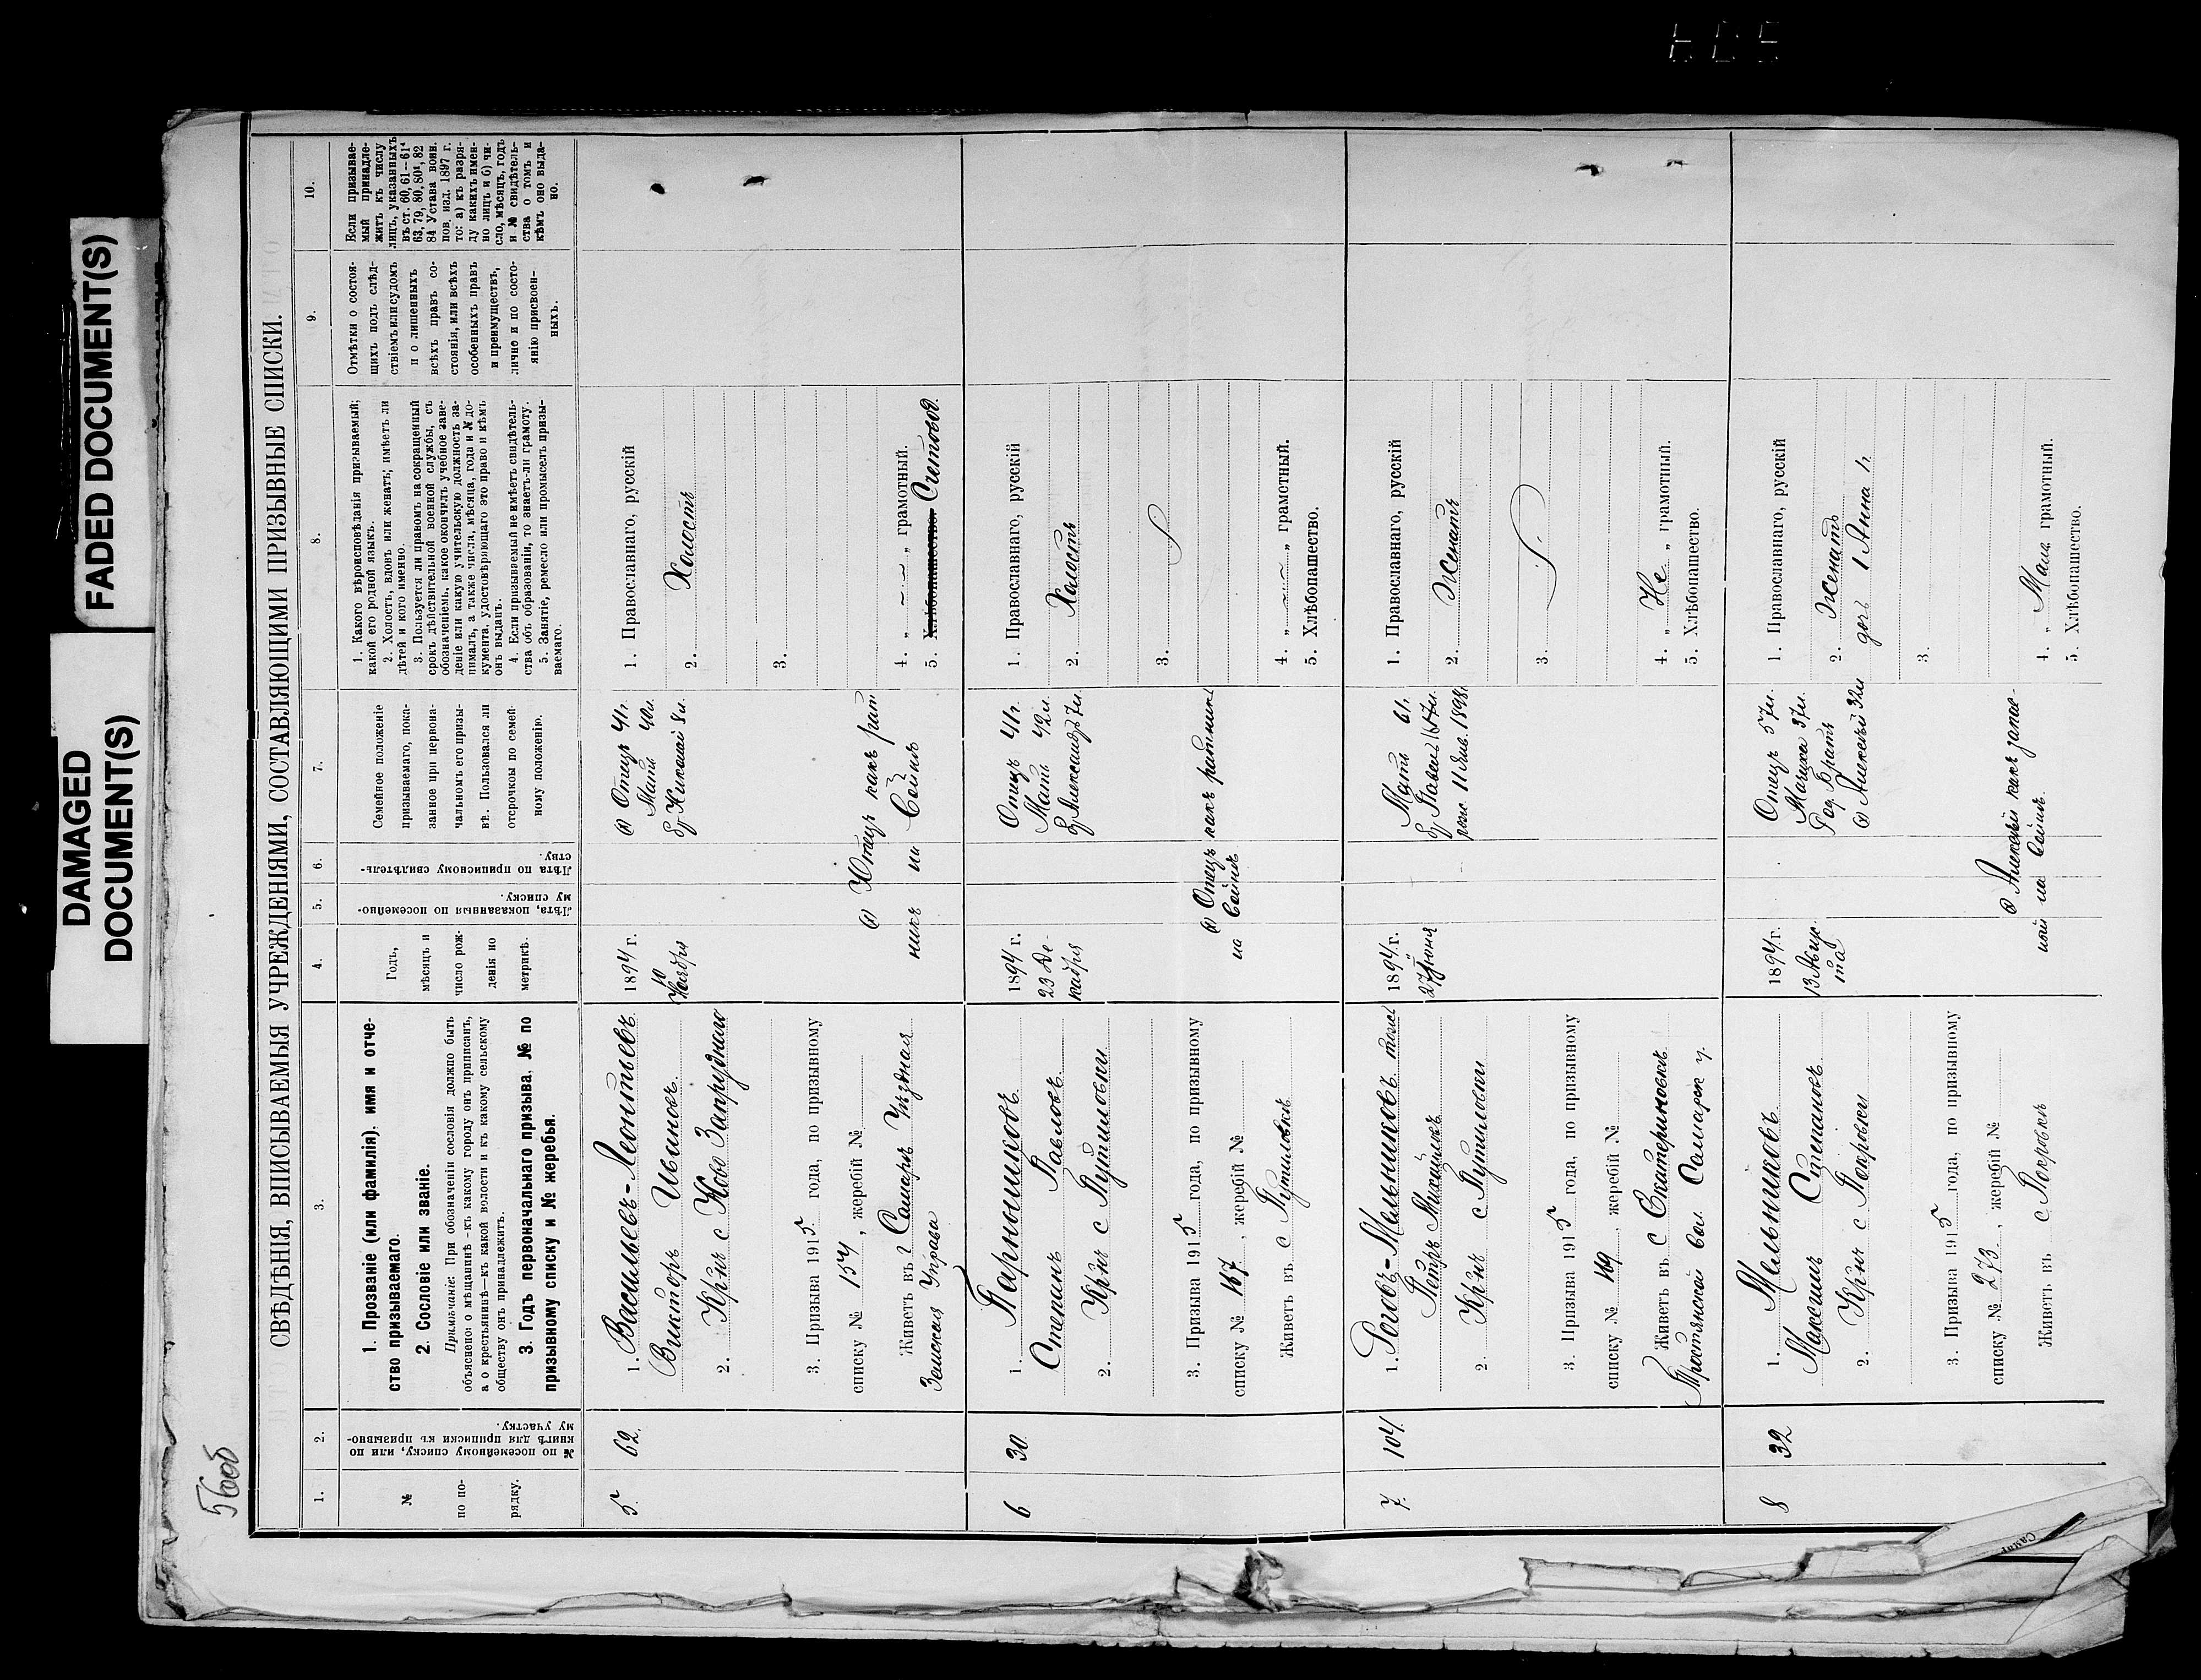 FADED DOCUMENT(S)
DAMAGED
DOCUMENT(S)
56об
СВѢДѢНІЯ, ВПИСЫВАЕМЫЯ УЧРЕЖДЕНІЯМИ, СОСТАВЛЯЮЩИМИ ПРИЗЫВНЫЕ СПИСКИ.
1.
2.
3.
4.
5.
6.
7.
8.
9.
10.
№
по по-
рядку.
№ по посемейному списку, или по
книгѣ для приписки къ призывно-
му участку.
1. Прозваніе (или фамилія). имя и отче-
ство призываемаго.
2. Сословіе или званіе.
Примѣчаніе: При обозначеніи сословія должно быть
объяснено: о мѣщанинѣ - къ какому городу онъ приписанъ,
а о крестьянинѣ—къ какой волости и къ какому сельскому
обществу онъ принадлежитъ.
3. Годъ первоначальнаго призыва, № по
призывному списку и № жеребья.
Годъ,
мѣсяцъ и
число рож-
денія но
метрикѣ.
Лѣта, показанныя по посемейно-
му списку.
Лѣта по приписному свидѣтель-
ству.
Семейное положеніе
призываемаго, пока-
занное при первона-
чальномъ его призы-
вѣ. Пользовался ли
отсрочкою по семей-
ному положенію.
1. Какого вѣроисповѣданія призываемый;
какой его родной языкъ.
2. Холостъ, вдовъ или женатъ; имѣетъ ли
дѣтей и кого именно.
3. Пользуется ли правомъ на сокращенный
срокъ дѣйствительной военной службы, съ
обозначеніемъ, какое окончилъ учебное заве-
деніе или какую учительскую должность за-
нималъ, а также числа, мѣсяца, года и № до-
кумента, удостовѣряющаго это право и кѣмъ
онъ выданъ.
4. Если призываемый не имѣетъ свидѣтель-
ства объ образованіи, то знаетъ-ли грамоту.
5. Занятіе, ремесло или промыселъ призы-
ваемаго.
Отмѣтки о состоя-
щихъ подъ слѣд-
ствіемъ или судомъ
и о лишенныхъ
всѣхъ правъ со-
стоянія, или всѣхъ
особенныхъ правъ
и преимуществъ,
лично и по состо-
янію присвоен-
ныхъ.
Если призывае-
мый принадле-
житъ къ числу
лицъ, указанныхъ
въ ст. 60, 61—61⁴
63, 79, 80, 80¹, 82
84 Устава воин.
пов. изд. 1897 г.
то: а) къ разря-
ду какихъ имен-
но лицъ и б) чи-
сло, мѣсяцъ, годъ
и № свидѣтель-
ства о томъ и
кѣмъ оно выда-
но.
5.
62.
1. Васильевъ-Леонтьевъ
Викторъ Ивановъ
2. Кр-нъ с Ново Запруднаго
3. Призыва 1915 года, по призывному
списку № 154, жеребій №
Живетъ въ г Самарѣ Уѣздная
Земская Управа
1894 г.
10
Ноября
Отецъ 41 г.
Мать 40 л.
бр Николай 8 л.
Отецъ какъ рат
никъ на Войнѣ
1. Православнаго, русскій
2. Холостъ
3.
4. „ „ грамотный.
5. Хлѣбопашество. Счетовод.
6
30.
1. Парньшиковъ
Степанъ Павловъ
2. Кр-нъ с Путиловки
3. Призыва 1915 года, по призывному
списку № 167, жеребій №
Живетъ въ с Путиловкѣ
1894 г.
23 Де-
кабря
Отецъ 41 г.
Мать 42 л.
бр Александр 7 л.
Отецъ какъ ратникъ
на Войнѣ
1. Православнаго, русскій
2. Холостъ
3.
4. „ „ грамотный.
5. Хлѣбопашество.
7.
104.
1. Роговъ-Мельниковъ тож
Петръ Михайловъ
2. Кр-нъ с Путиловки
3. Призыва 1915 года, по призывному
списку № 169, жеребій №
Живетъ въ с Екатериновкѣ
Тростянской вол. Самарск у.
1894 г.
27 Іюня
Мать 61 г.
бр Павел
рож. 11 Янв. 1898 г.
1. Православнаго, русскій
2. Женатъ
3.
4. „ Не „ грамотный.
5. Хлѣбопашество.
8
32
1. Мельниковъ
Максимъ Степановъ
2. Кр-нъ с Покровки
3. Призыва 1915 года, по призывному
списку № 273, жеребій №
Живетъ въ с Покровкѣ
1894 г.
13 Авгус
та
Отецъ 57 л.
Мачиха 37 л.
Род Братъ
Алексѣй 32 л
Алексѣй какъ запас-
ной на Войнѣ.
1. Православнаго, русскій
2. Женатъ
доч 1 Анна 1 г.
3.
4. „ Мала грамотный.
5. Хлѣбопашество.